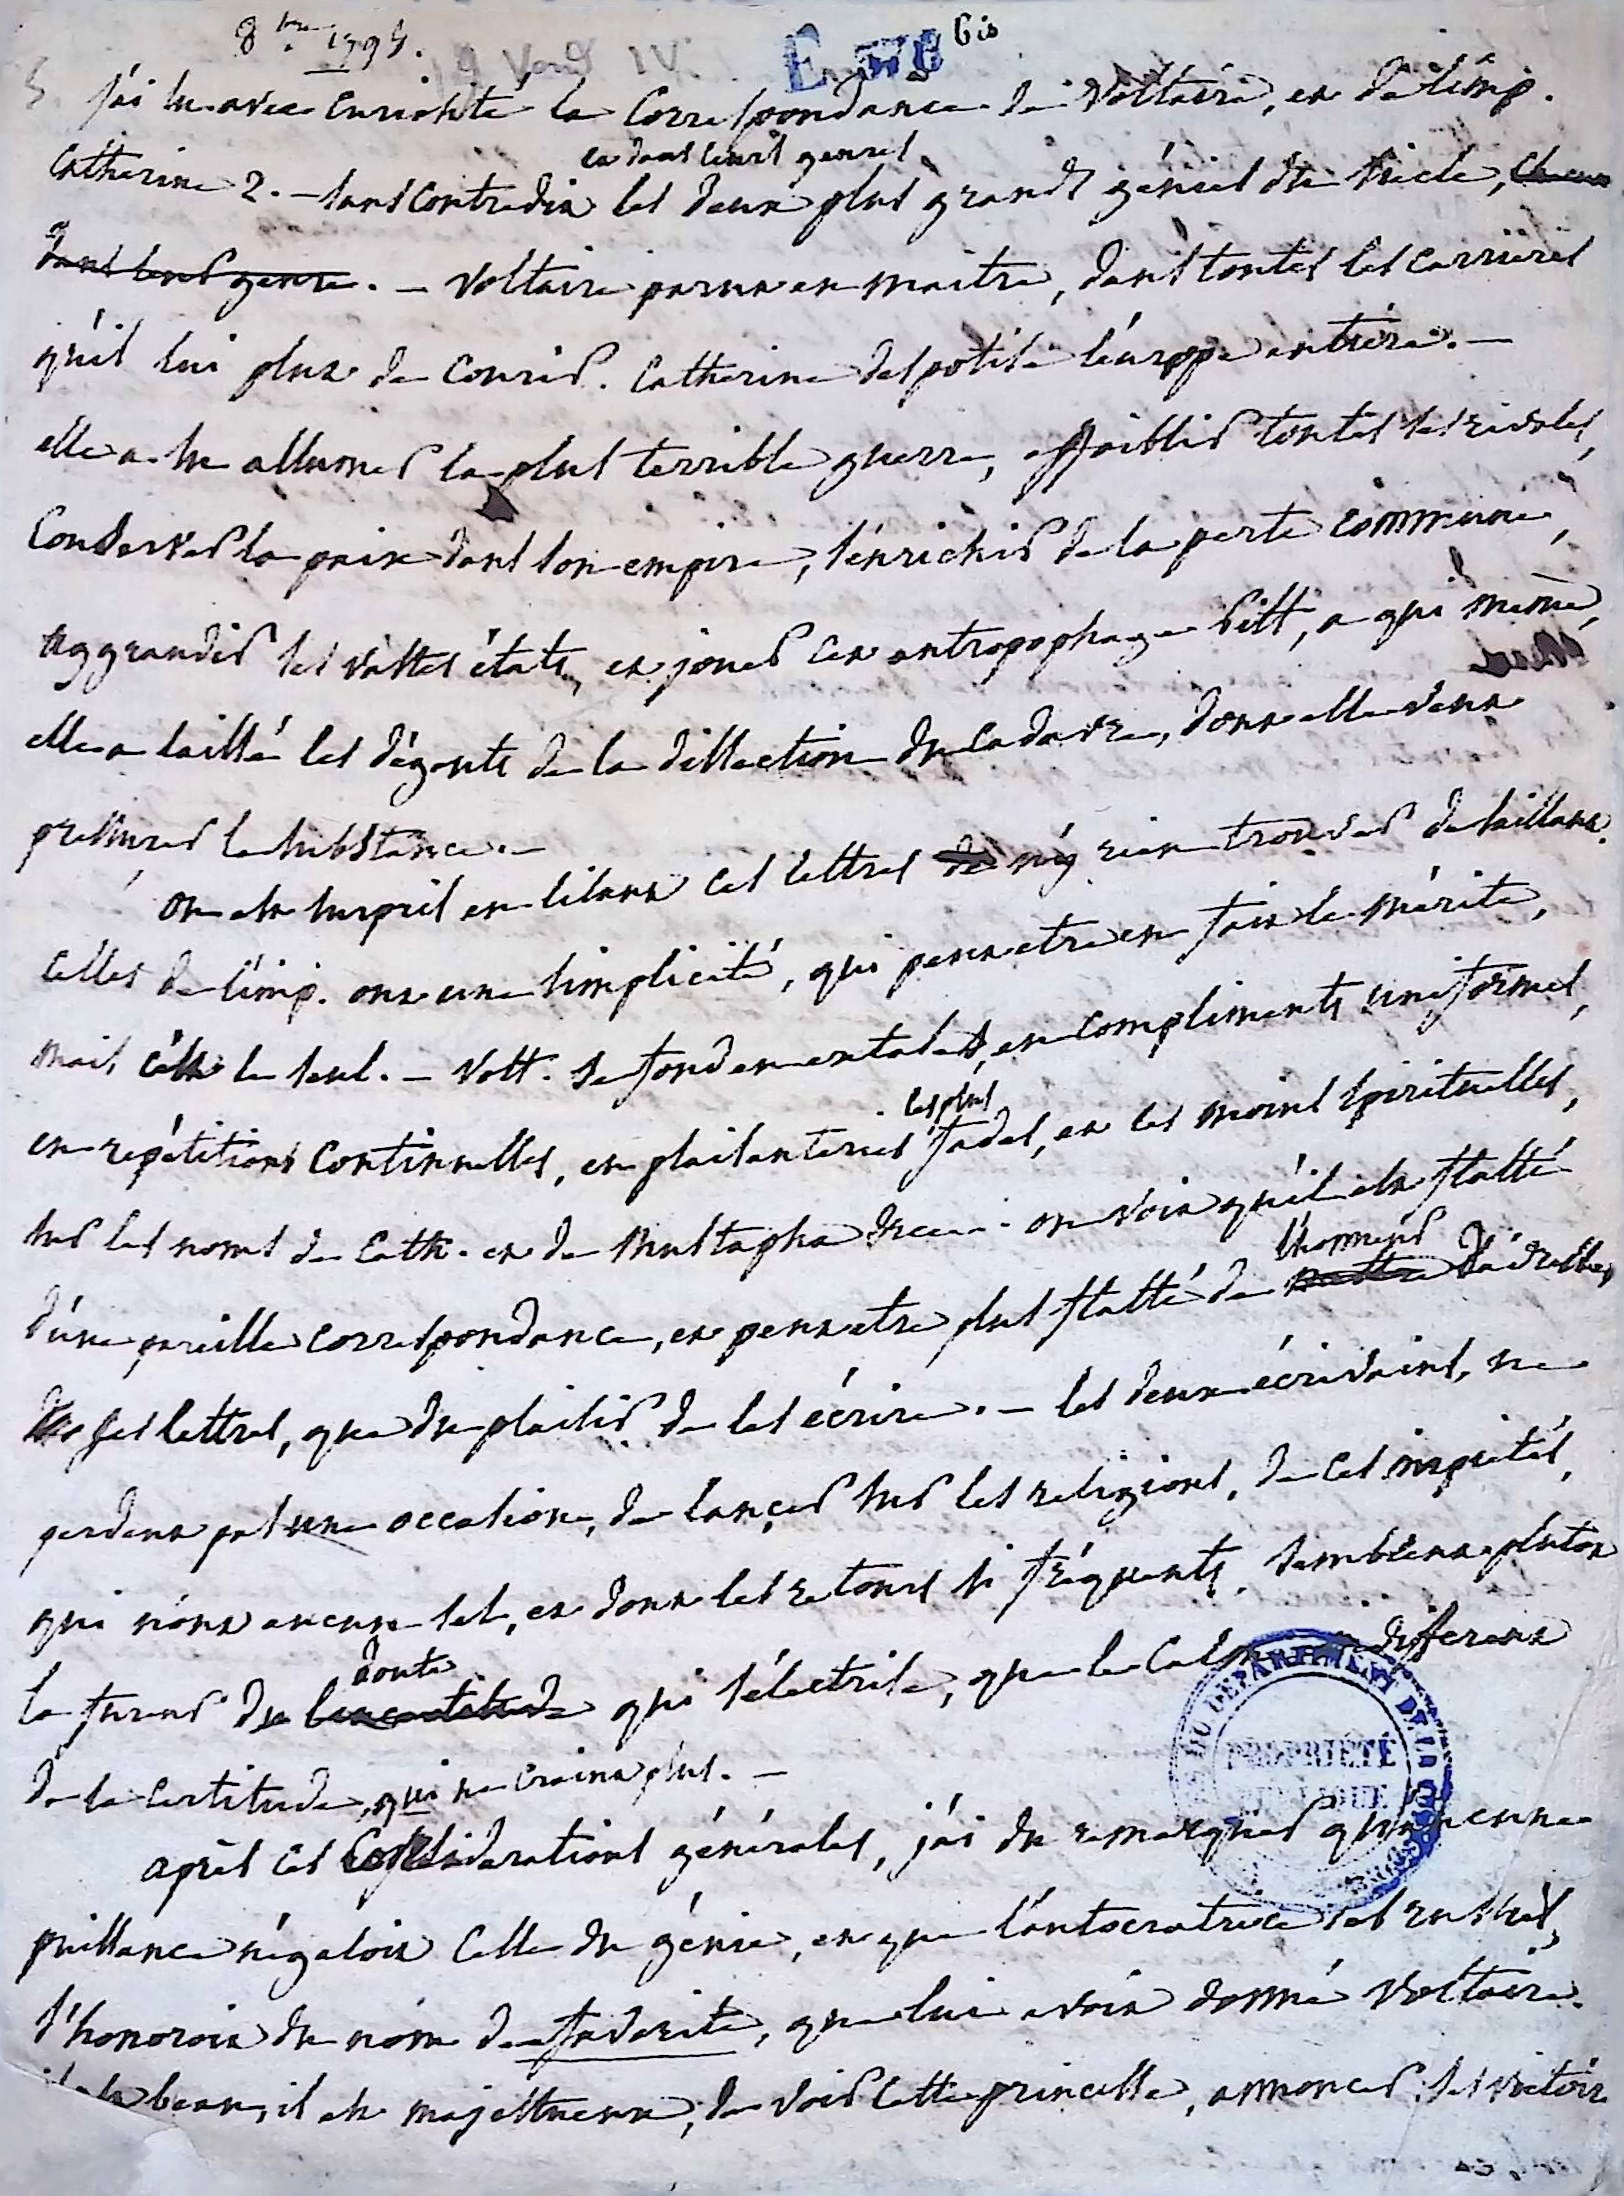 8bre 1795. 9 Vend IV. E 76 Bis
j'ai lu avec curiosité la Correspondance de Voltaire, et de l'imp.
Catherine 2. — sans contredit les deux plus grands génies du siècle, chacun
et dans leurs genres
dans leur genre. — Voltaire parut en maitre, dans toutes les carrières
qu'il lui plut de courir. Catherine despotise l'europe entière. —
elle a su allumer la plus terrible guerre, affaiblir toutes ses rivales,
Conserver la paix dans son empire, s'enrichir de la perte commune,
aggrandir ses vastes états, et jouer cet antropophage Pitt, a qui même,
elle a laissé les dégouts de la dissection du cadavre, dont elle veut
pressurer la substance. —
on est surpris en lisant ces lettres de n'y rien trouver de saillant.
Celles de l'imp. ont une simplicité, qui peut etre en fait le mérite,
mais c'est le seul. — Volt. se fond en extases, en compliments uniformes,
en repétitions continuelles, en plaisanteries fades, et les moins spirituelles,
les plus
sur les noms de Cath. et de Mustapha &c. on voit qu'il est flatté
d'une pareille correspondance, et peut etre plus flatté de l'adresse
l'honneur
de ses lettres, que du plaisir de les écrire. — les deux écrivains, ne
perdent pas une occasion, de lancer sur les religions, de ces impiétés,
qui n'ont aucun sel, et dont les retours si fréquents, semblent plutot
la fureur du qui s'électrise, que le calme indifferent
doute
de la certitude, qui ne craint plus. —
après ces Considerations générales, j'ai du remarquer qu'aucune
puissance n'égaloit celle du génie, et que l'autocratrice des russies,
s'honoroit du nom de favorite, que lui avoit donné Voltaire.
il est beau, il est majestueux, de voir cette princesse, annoncer ses victoir
DU DEPARTEMENT DE LA
PROPRIÉTÉ
PUBLIQUE